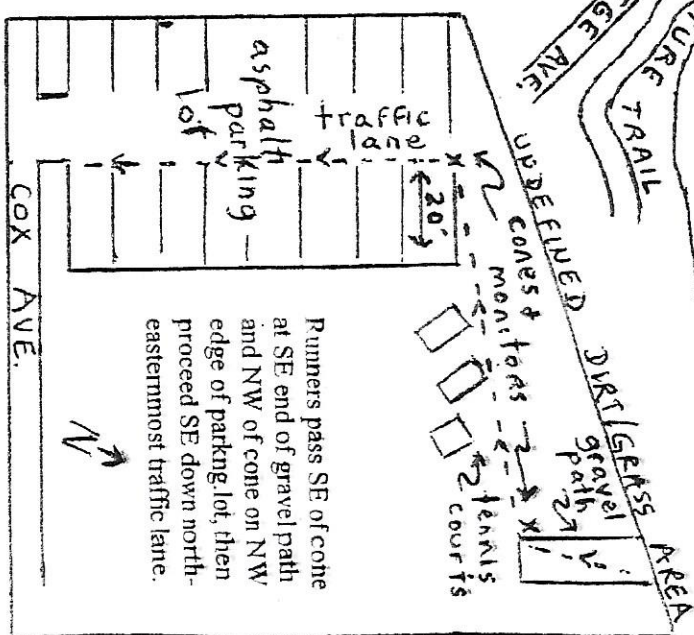 GE AVE.
TURE TRAIL
UNDEFINED DIRT/GRASS AREA
gravel
path
cones &
monitors
tennis
courts
traffic
lane
20'
asphalt
parking
lot
Runners pass SE of cone
at SE end of gravel path
and NW of cone on NW
edge of parkng.lot, then
proceed SE down north-
easternmost traffic lane.
N
COX AVE.